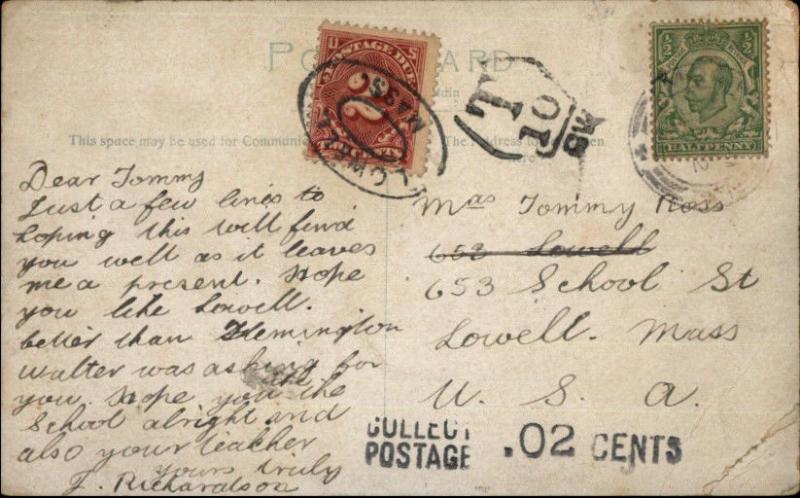 POST CARD
U S
POSTAGE DUE
2
CENTS
LOWELL
MASS
T
10
HALFPENNY
This space may be used for Communi
The Address to
en
Dear Tommy
Just a few lines to
hoping this will find
you well as it leaves
me a present. Hope
you like Lowell.
better than Flemington
Walter was asking for
you. Hope you like the
School alright and
also your teacher
yours truly
J. Richardson
Mas Tommy Ross
652 Lowell
653 School St
Lowell. Mass
U. S. A.
COLLECT
POSTAGE .02 CENTS